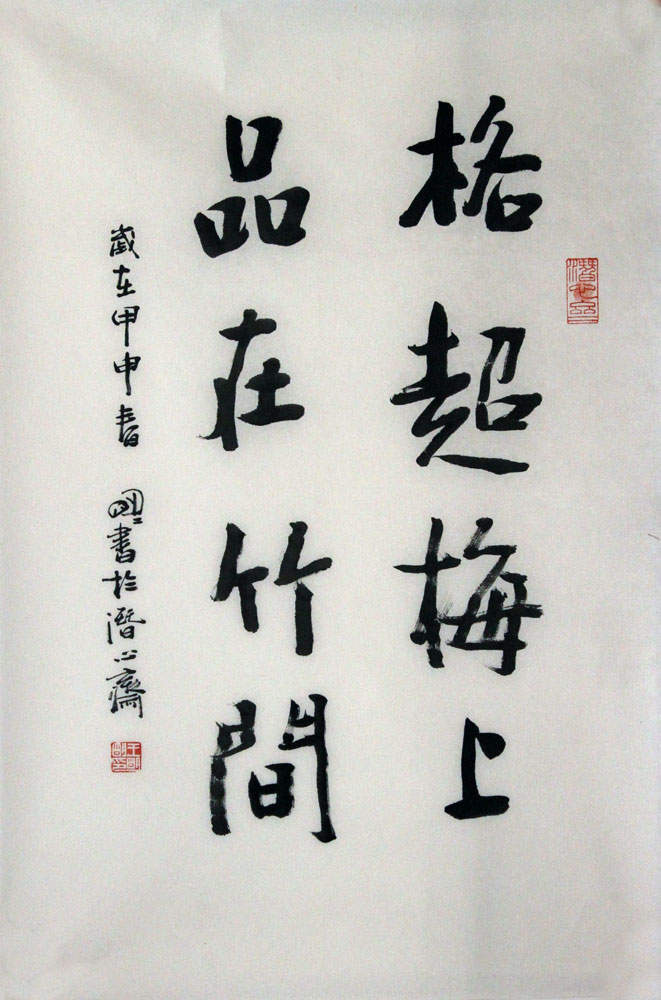 格超梅上
品在竹間
歲在甲申春 書於潛心齋